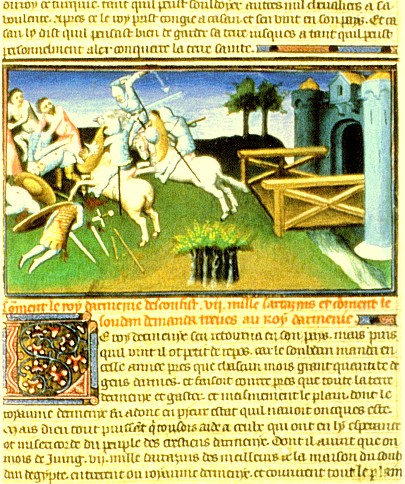 roy de turquie. tant quil peust souldoyer autres mil chevaliers a sa
Apres ce le roy prist congie a casan et sen vint en son pays. Et ca
san ly dist quil pensast bien de garder sa terre iusques a tant quil peust
personnelment aler conquerre la terre sainte.
Coment le roy darmenie desconfist .vij. mille sarrazins et coment le
soudan demanda treues au roy darmenie
Le roy dermenie sen retourna en son pays. mais puis
quil vint il ot petit de repos. car le soudan manda en
celle annee pres que chascun mois grant quantite de
gens darmes. et faisoit courre pres que toute la terre
dermenie et gaster. et mesmement le plain dont le
royaume dermenie fu adonc en pieur estat quil navoit oncques este.
Mais dieu tout puissant qui tousiours aide a ceulx qui ont en ly esperance
ot misericorde du peuple des crestiens darmenie. Dont il avint que ou
mois de Juing .vij. mille sarrazins des meilleurs de la maison du soub
dan degypte. entrerent ou royaume dermenie. et couruent tout le plain